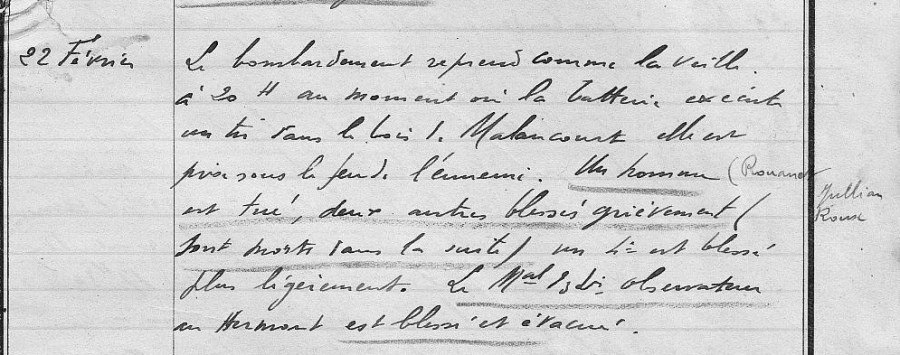 22 Février
Le bombardement reprend comme la veille.
à 20 H au moment où la batterie exécute
un tir dans le bois de Malancourt elle est
prise sous le feu de l'ennemi. Un homme (Rouanet
est tué, deux autres blessés grièvement (
Jullian
Roux
sont morts dans la suite) un 4e est blessé
plus légèrement. Le Mal des Lis observateur
au Hermont est blessé et évacué.